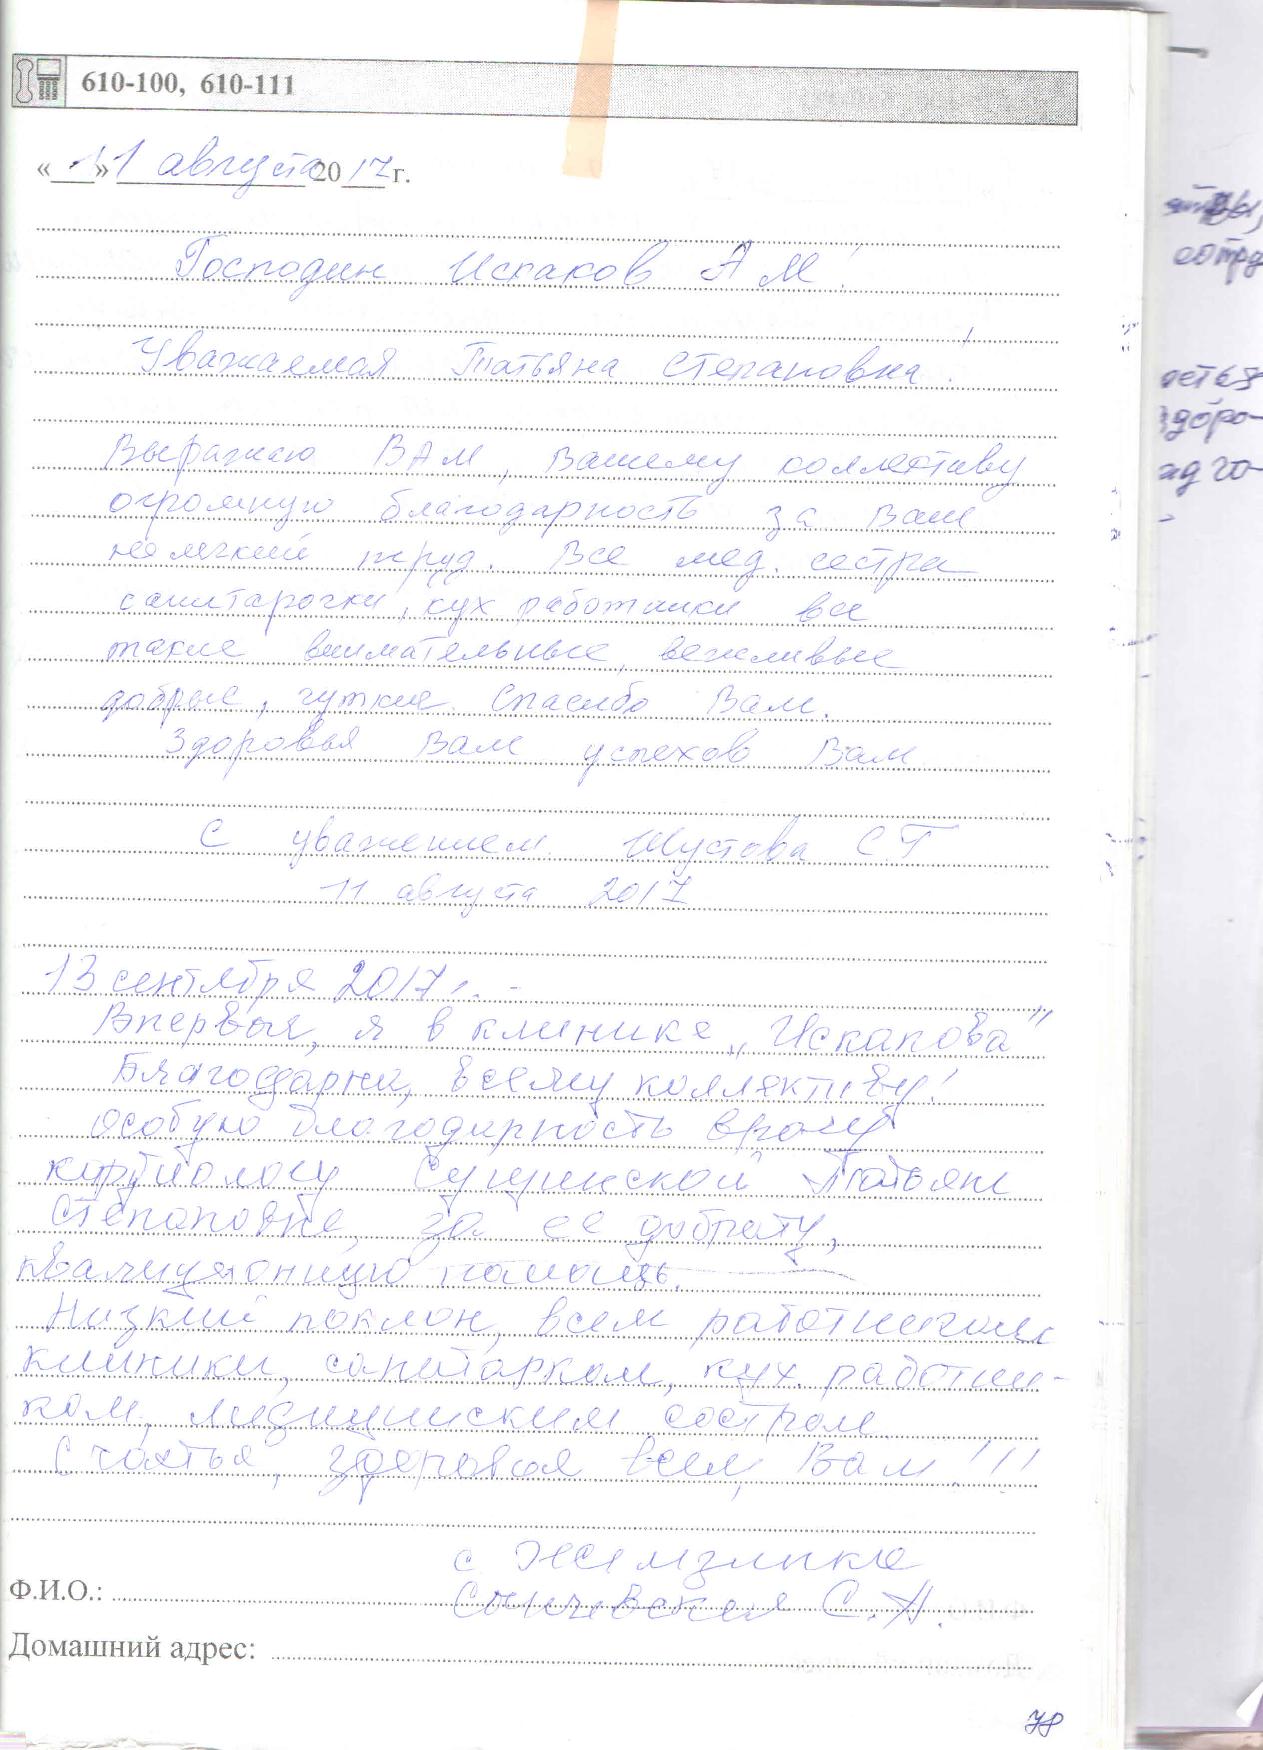 610-100, 610-111
«11» августа 2017 г.
Господин Искаков А М!
Уважаемая Татьяна Степановна!
Выражаю ВАМ, Вашему коллективу
огромную благодарность за Ваш
нелегкий труд. Все мед. сестра
санитарочки, кух работники все
такие внимательные, вежливые
добрые, чуткие. Спасибо Вам.
Здоровья Вам успехов Вам
С уважением. Шустова С.Т
11 августа 2017
13 сентября 2017 г. -
Впервые, я в клинике „Искакова"
Благодарна, всему коллективу!
Особую благодарность врачу
Татьяне
Степановне, за ее доброту,
помощь.
Низкий поклон, всем работникам
клиники, санитаркам, кух. работни-
кам, медицинским сестрам
Счастья, здоровья всем, Вам!!!
с
С.А.
Ф.И.О.:
Домашний адрес:
78